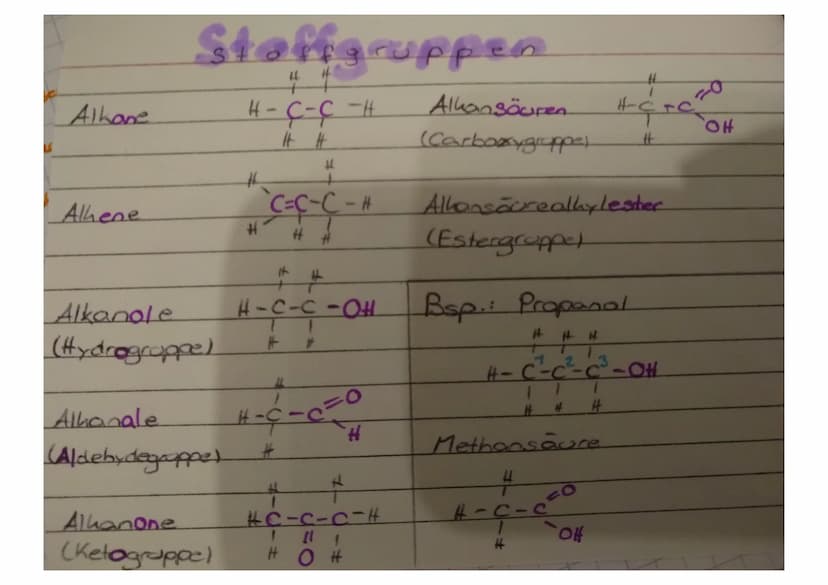 Stoffgruppen
Alkane
H H
H - C - C - H
H H
Alkene
H H
C=C-C-H
H H H
Alkanole
(Hydrogruppe)
H H
H-C-C-OH
H H
Alkanale
(Aldehydegruppe)
H
H-C-C=O
H H
Alkanone
(Ketogruppe)
H H
HC-C-C-H
H O H
Alkansäuren
(Carboxygruppe)
H
H-C-C=O
H OH
Alkansäurealkylester
(Estergruppe)
Bsp.: Propanol
H H H
H-C1-C2-C3-OH
H H H
Methansäure
H
H-C-C=O
H OH